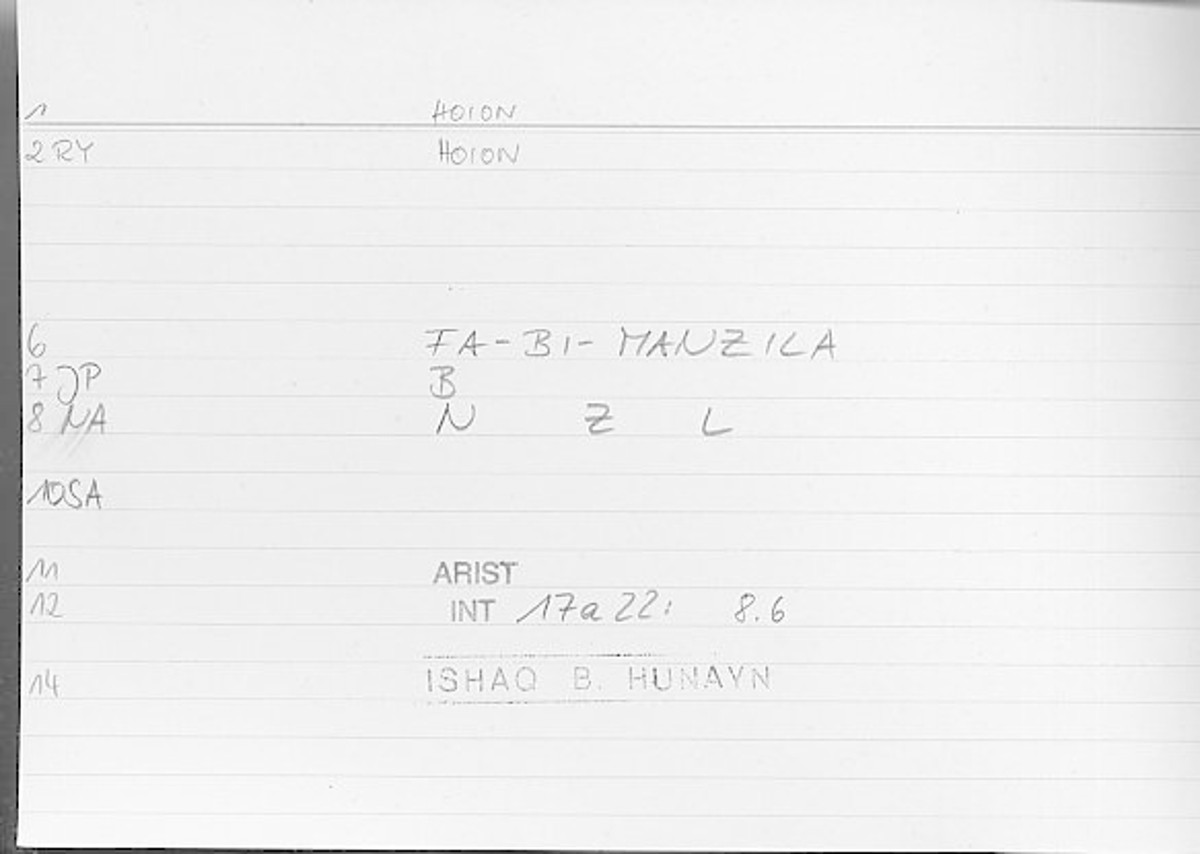 1 HOION
2 RY HOION
6 FA-BI-MANZILA
7 JP B
8 NA N Z L
10 SA
11 ARIST
12 INT 17a 22: 8.6
14 ISHAQ B. HUNAYN